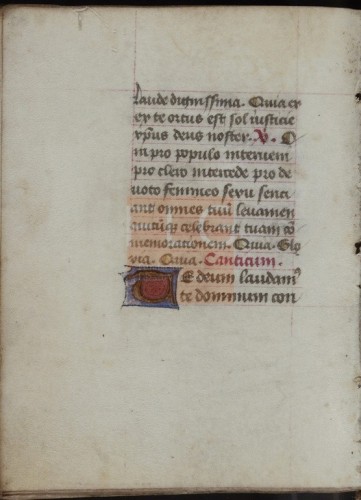 laude dignissima. Quia ex
ex te ortus est sol iusticie
xp̄us deus noster. V. O
ra pro populo interueni
pro clero intercede pro de
uoto femineo sexu senci
ant omnes tuū leuamen
quicūqz celebrant tuam cō
memorationem. Quia. Glo
ria. Quia. Canticum.
Te deum laudamꝰ
te dominum con